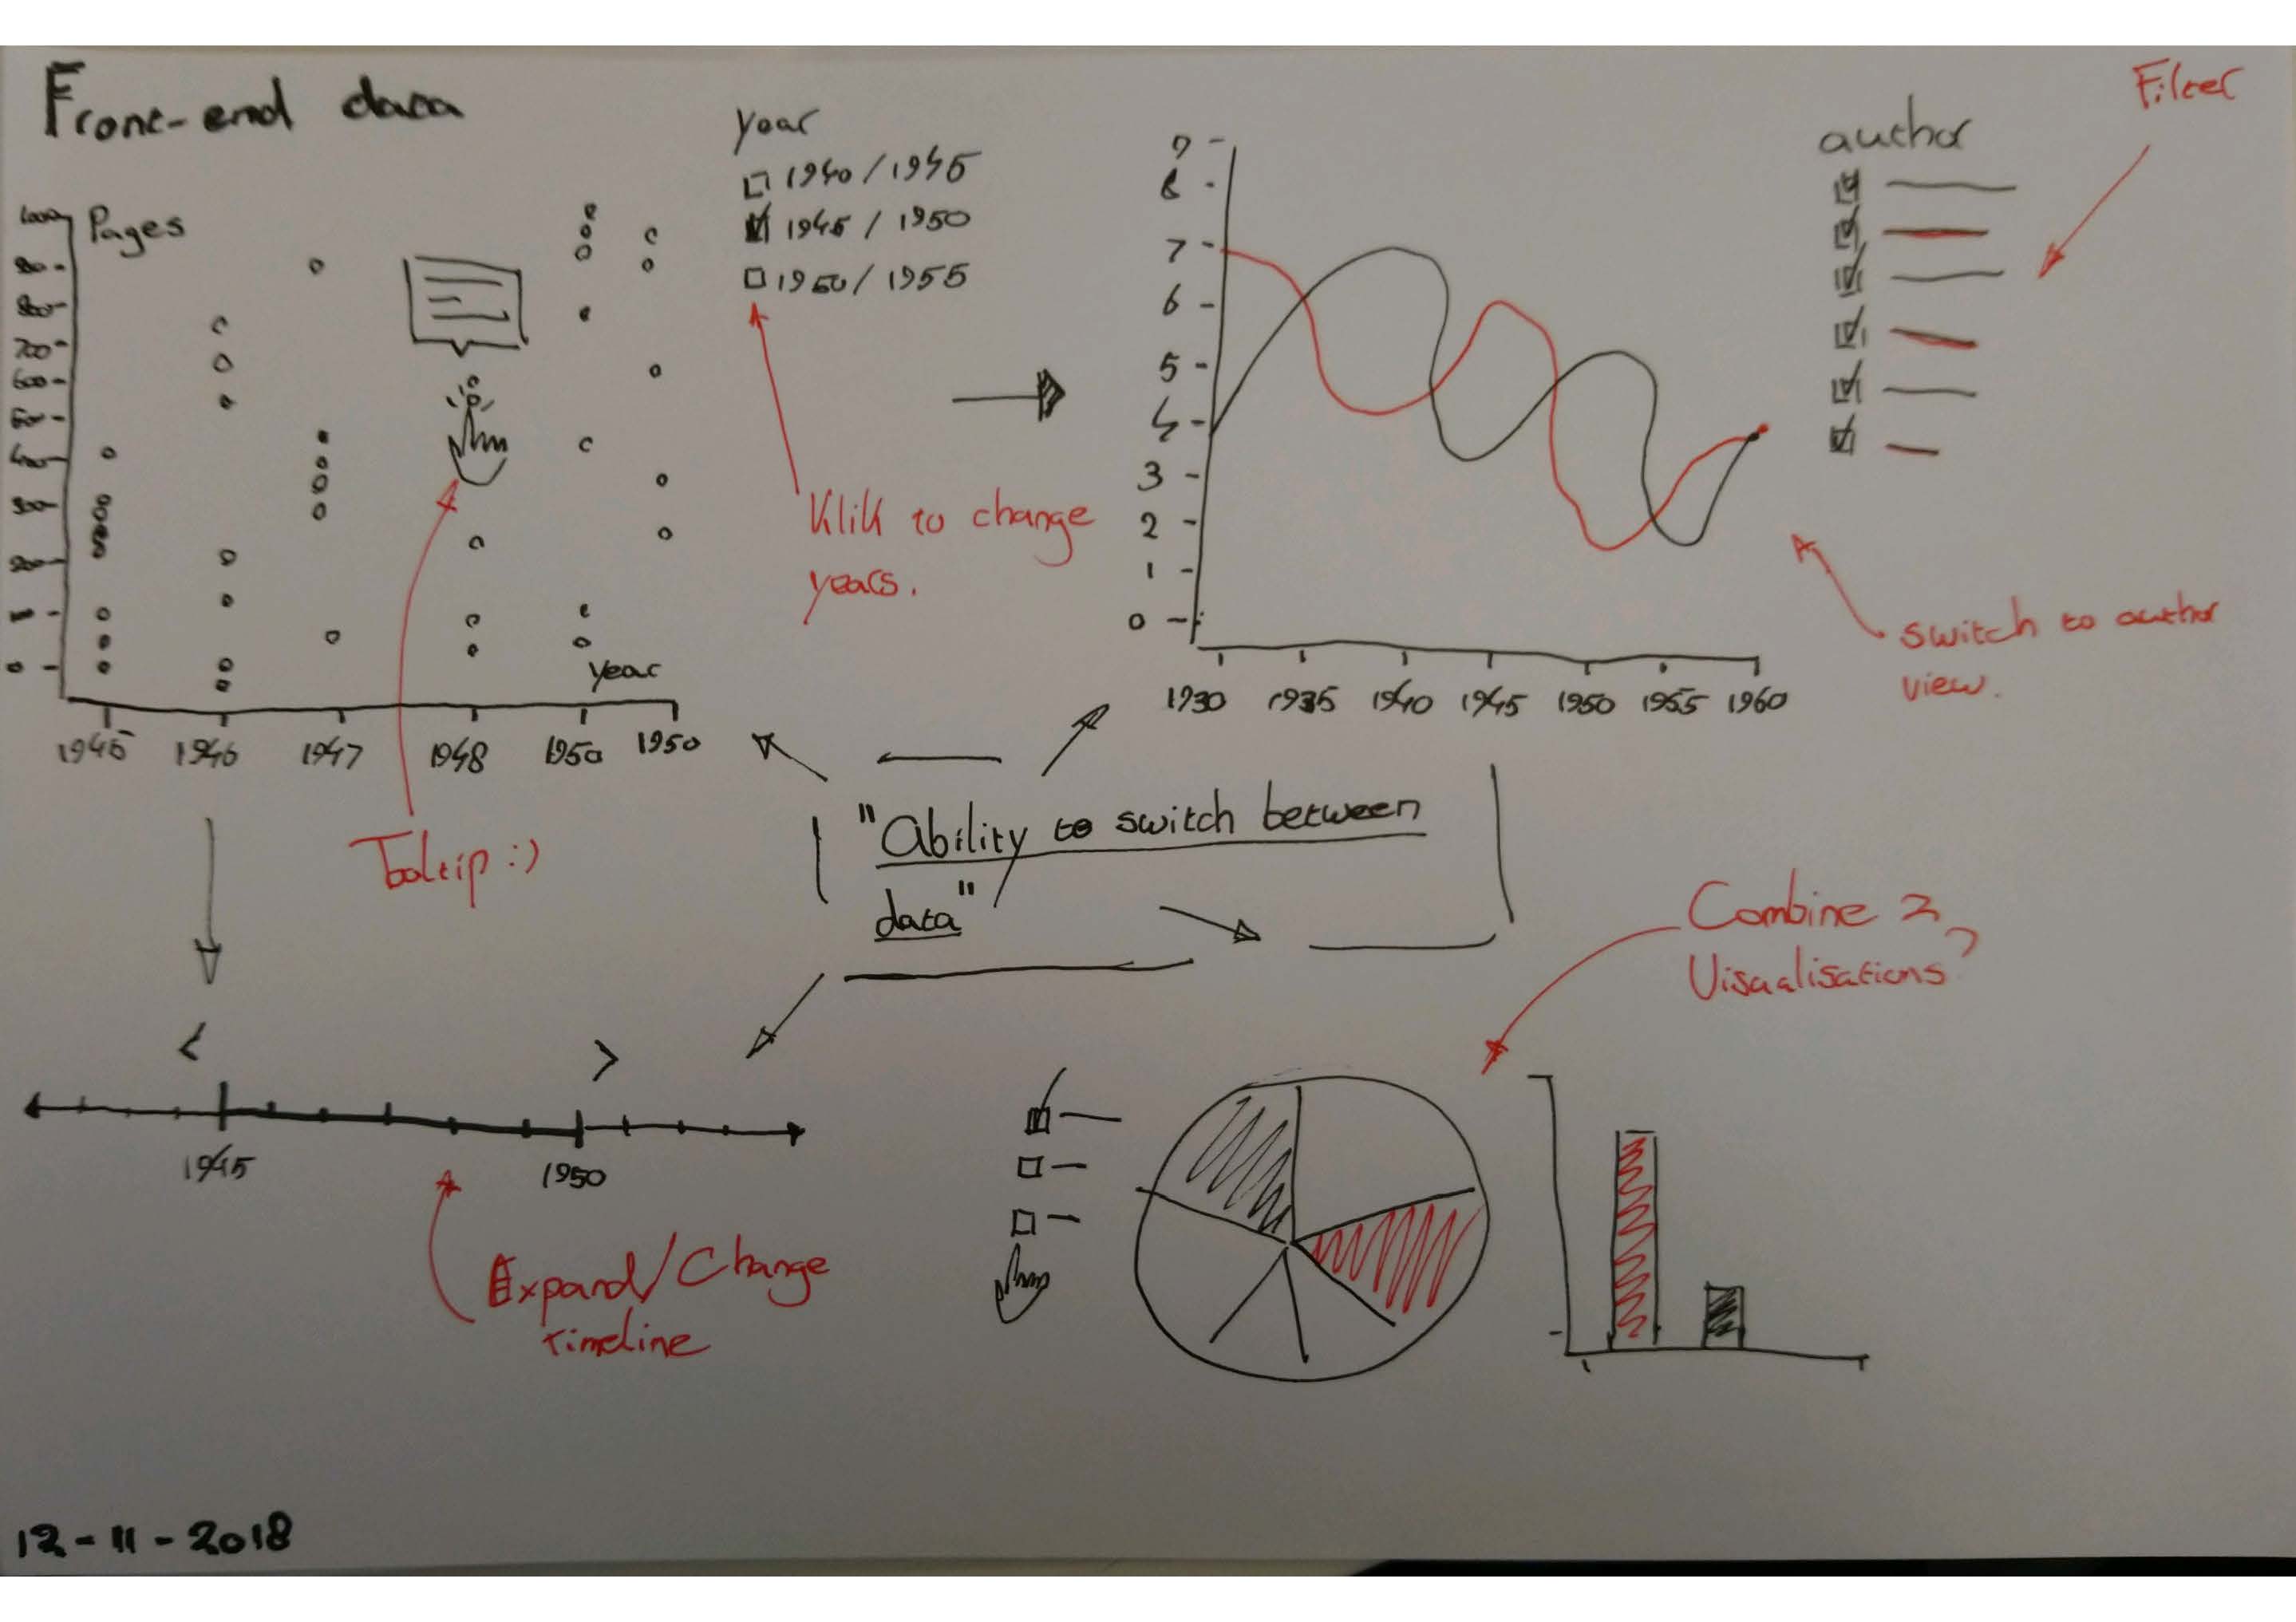 Front-end data
Pages
1000
800
700
600
400
300
200
1
0
year
1945 1946 1947 1948 1950 1950
year
1940 / 1945
1945 / 1950
1950 / 1955
Klik to change
years.
Tooltip :)
9
8
7
6
5
4
3
2
1
0
1930 1935 1940 1945 1950 1955 1960
author
Filter
switch to author
view.
"Ability to switch between
data"
< >
1945 1950
Expand/Change
timeline
Combine 2
Visualisations?
12-11-2018